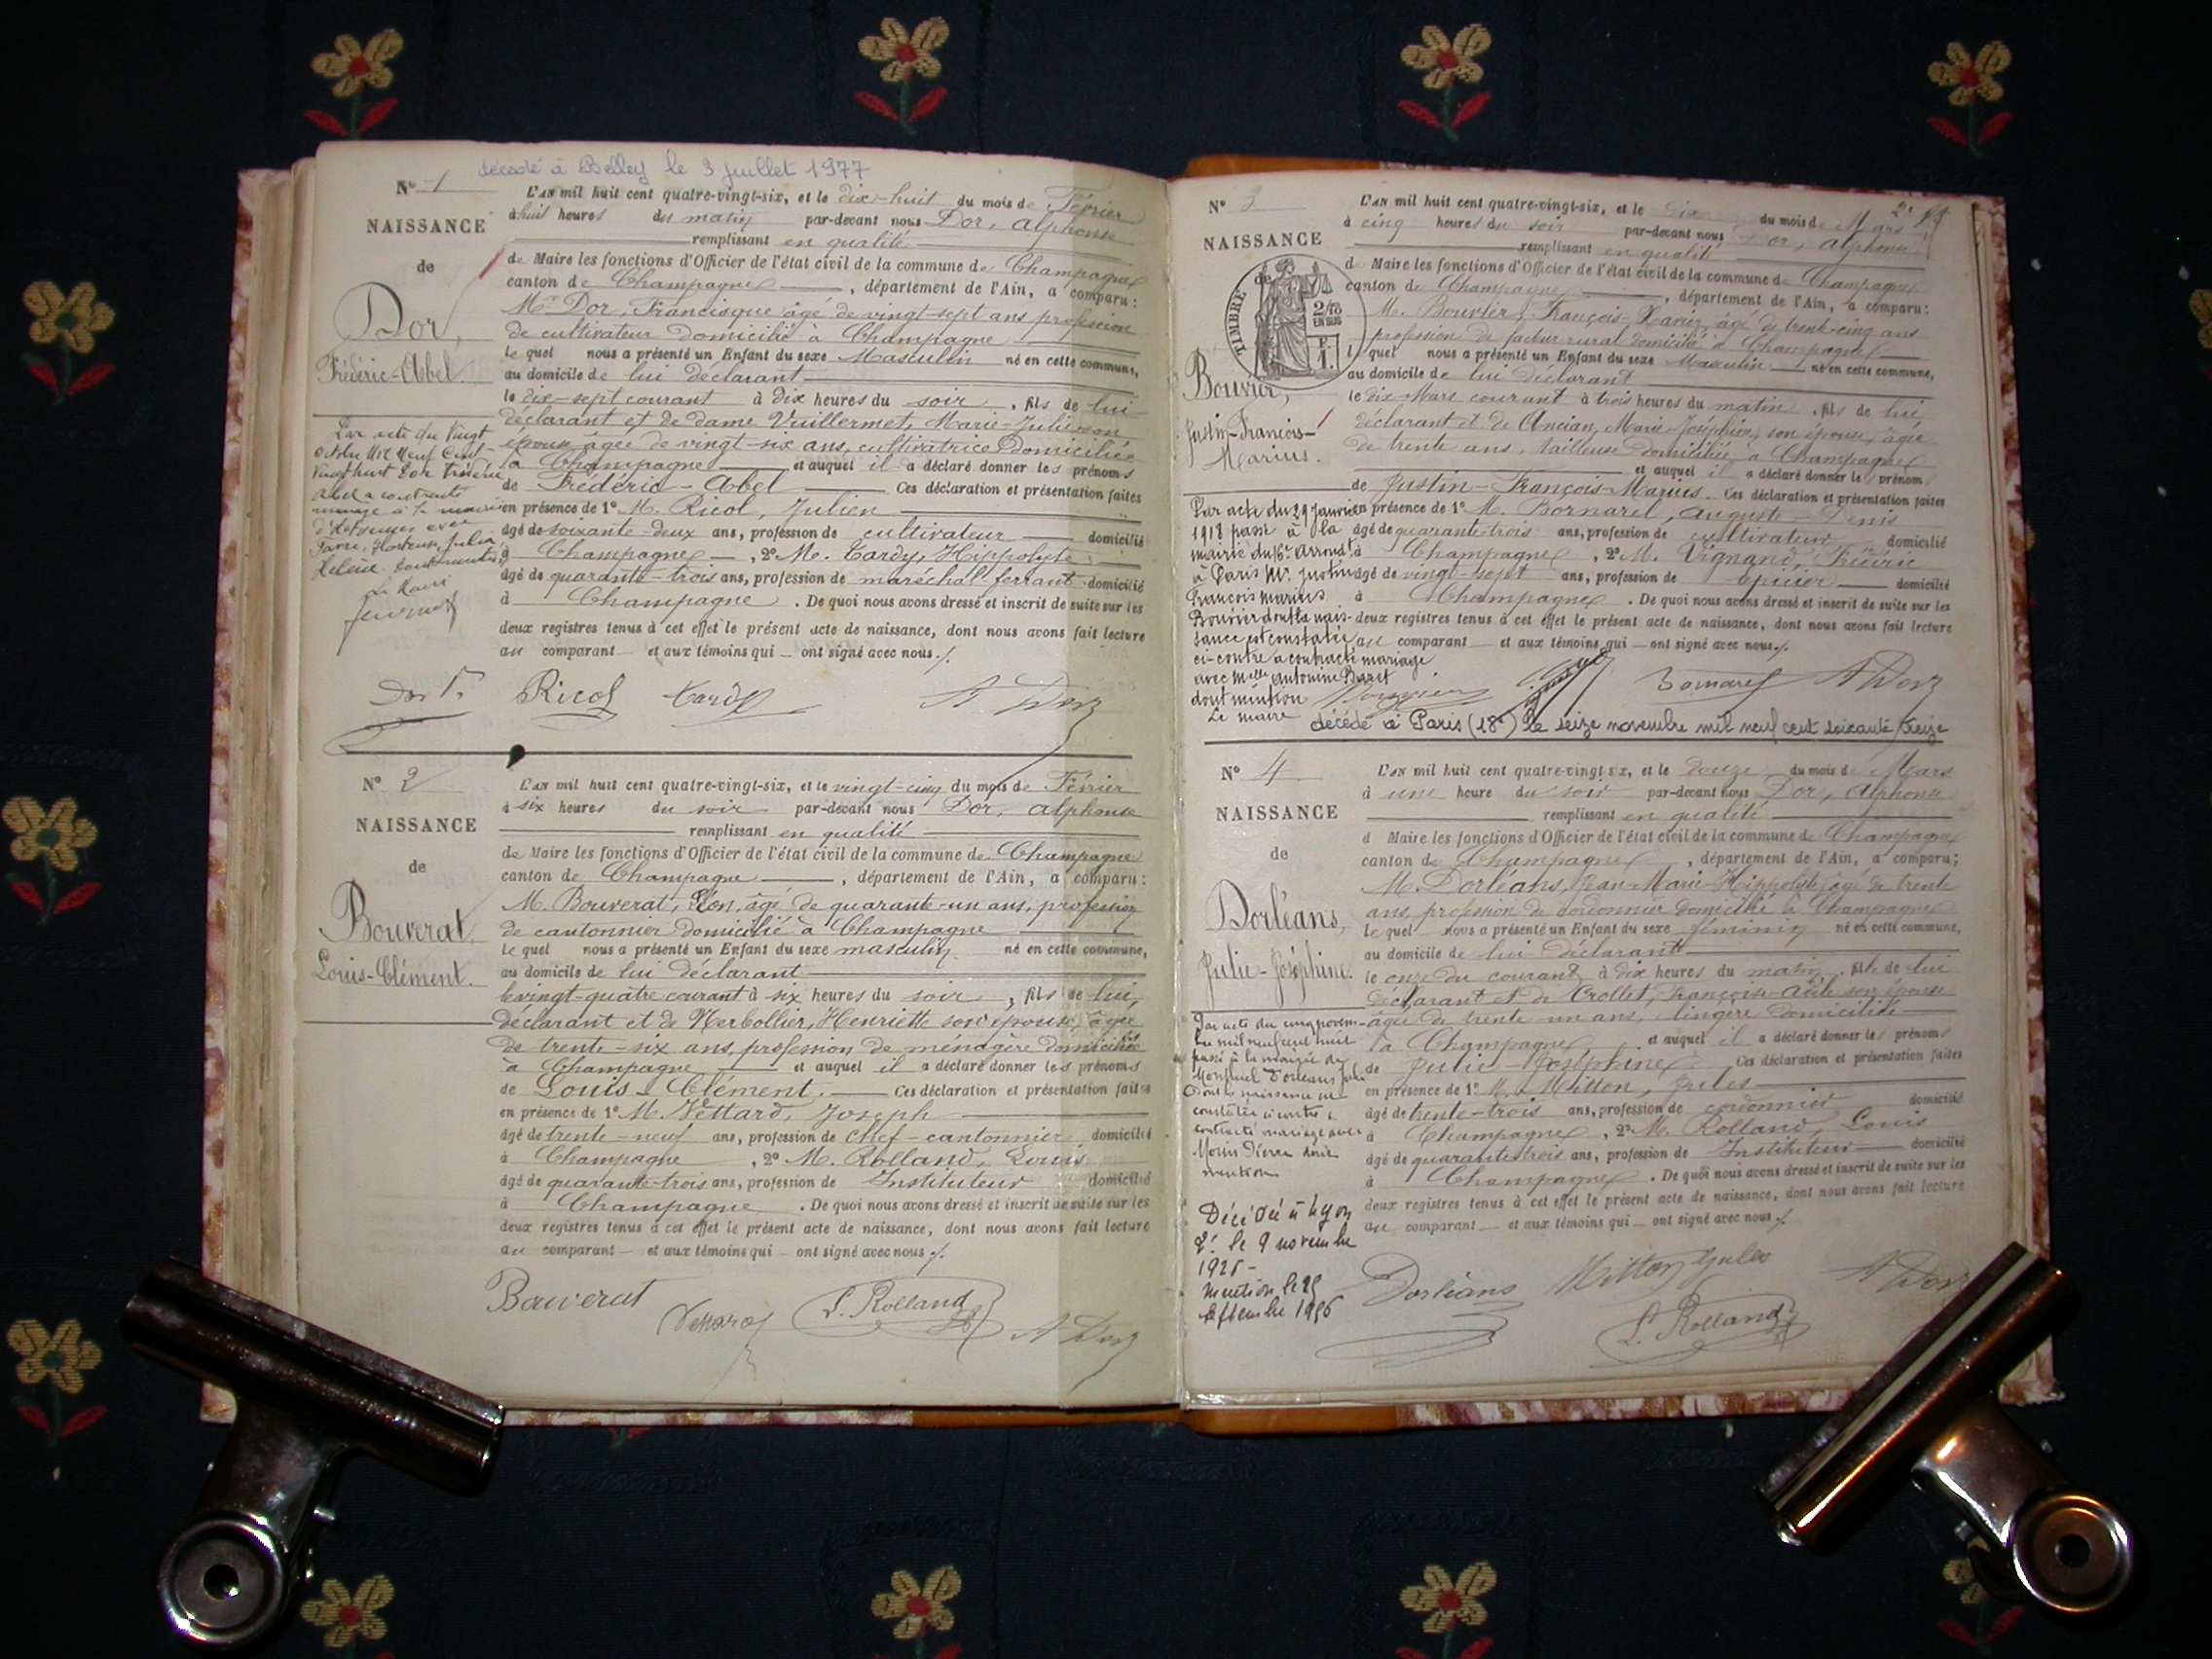 décédé à Belley le 3 juillet 1977
N° 1
NAISSANCE
de
Dor,
Frédéric-Abel.
L'an mil huit cent quatre-vingt-six, et le dix-huit du mois de Février
à huit heures du matin par-devant nous Dor, Alphonse
remplissant en qualité
de Maire les fonctions d'Officier de l'état civil de la commune de Champagne
canton de Champagne, département de l'Ain, a comparu:
Mr Dor, Francisque âgé de vingt-sept ans profession
de cultivateur domicilié à Champagne
le quel nous a présenté un Enfant du sexe Masculin né en cette commune,
au domicile de lui déclarant
le dix-sept courant à dix heures du soir, fils de lui
déclarant et de dame Vuillermet, Marie-Julie son
épouse âgée de vingt-six ans, cultivatrice domiciliée
à Champagne et auquel il a déclaré donner les prénoms
de Frédéric-Abel Ces déclaration et présentation faites
en présence de 1° M. Ricol, Julien
âgé de soixante-deux ans, profession de cultivateur domicilié
à Champagne, 2° M. Tardy, Hippolyte
âgé de quarante-trois ans, profession de maréchal ferrant domicilié
à Champagne. De quoi nous avons dressé et inscrit de suite sur les
deux registres tenus à cet effet le présent acte de naissance, dont nous avons fait lecture
au comparant et aux témoins qui ont signé avec nous ./.
Par acte du Vingt
Octobre Mil Neuf Cent
Vingt huit Dor Frédéric
Abel a contracté
mariage à la mairie
avec
Favre, Hortense, Julia
Le Maire
Dor F. Ricol Tardy A Dor
N° 2
NAISSANCE
de
Bouverat,
Louis-Clément.
L'an mil huit cent quatre-vingt-six, et le vingt-cinq du mois de Février
à six heures du soir par-devant nous Dor, Alphonse
remplissant en qualité
de Maire les fonctions d'Officier de l'état civil de la commune de Champagne
canton de Champagne, département de l'Ain, a comparu:
M. Bouverat, Léon, âgé de quarante-un ans, profession
de cantonnier domicilié à Champagne
le quel nous a présenté un Enfant du sexe masculin né en cette commune,
au domicile de lui déclarant
le vingt-quatre courant à six heures du soir, fils de lui,
déclarant et de Herbollier, Henriette son épouse, âgée
de trente-six ans, profession de ménagère domiciliée
à Champagne et auquel il a déclaré donner les prénoms
de Louis-Clément. Ces déclaration et présentation faites
en présence de 1° M. Nettard, Joseph
âgé de trente-neuf ans, profession de chef-cantonnier domicilié
à Champagne, 2° M. Rolland, Louis
âgé de quarante-trois ans, profession de Instituteur domicilié
à Champagne. De quoi nous avons dressé et inscrit de suite sur les
deux registres tenus à cet effet le présent acte de naissance, dont nous avons fait lecture
au comparant et aux témoins qui ont signé avec nous ./.
Bouverat L. Rolland A Dor
N° 3
NAISSANCE
de
TIMBRE
2/10
EN SUS
F.
1.
Bouvier,
Justin-François-
Marius.
L'an mil huit cent quatre-vingt-six, et le dix du mois de Mars
à cinq heures du soir par-devant nous Dor, Alphonse
remplissant en qualité
d Maire les fonctions d'Officier de l'état civil de la commune de Champagne
canton de Champagne, département de l'Ain, a comparu:
M. Bouvier, François-Xavier, âgé de trente-cinq ans
profession de facteur rural domicilié à Champagne
le quel nous a présenté un Enfant du sexe Masculin né en cette commune,
au domicile de lui déclarant
le dix Mars courant à trois heures du matin, fils de lui
déclarant et de Ancian, Marie-Joséphine, son épouse, âgée
de trente ans, tailleuse domiciliée à Champagne
et auquel il a déclaré donner les prénoms
de Justin-François-Marius. Ces déclaration et présentation faites
en présence de 1° M. Bornarel, Auguste-Denis
âgé de quarante-trois ans, profession de cultivateur domicilié
à Champagne, 2° M. Vignand, Frédéric
âgé de vingt-sept ans, profession de épicier domicilié
à Champagne. De quoi nous avons dressé et inscrit de suite sur les
deux registres tenus à cet effet le présent acte de naissance, dont nous avons fait lecture
au comparant et aux témoins qui ont signé avec nous ./.
Par acte du 29 janvier
1918 passé à la
mairie du 6e arrondt
à Paris Mr Justin
François Marius
Bouvier dont la nais-
sance est constatée
ci-contre a contracté mariage
avec Melle Antonine
dont mention
Le maire
Bornarel A Dor
décédé à Paris (18e) le seize novembre mil neuf cent soixante treize
N° 4
NAISSANCE
de
Dorléans,
Julie-Joséphine.
L'an mil huit cent quatre-vingt-six, et le douze du mois de Mars
à une heure du soir par-devant nous Dor, Alphonse
remplissant en qualité
d Maire les fonctions d'Officier de l'état civil de la commune de Champagne
canton de Champagne, département de l'Ain, a comparu;
M. Dorléans, Jean-Marie-Hippolyte, âgé de trente
ans, profession de cordonnier domicilié à Champagne
le quel nous a présenté un Enfant du sexe féminin né en cette commune,
au domicile de lui déclarant
le onze du courant à dix heures du matin, fille de lui
déclarant et de Crollet, Françoise son épouse
âgée de trente un ans, lingère domiciliée
à Champagne et auquel il a déclaré donner les prénoms
de Julie-Joséphine Ces déclaration et présentation faites
en présence de 1° M. Mitton, Jules
âgé de trente-trois ans, profession de cordonnier domicilié
à Champagne, 2° M. Rolland, Louis
âgé de quarante-trois ans, profession de Instituteur domicilié
à Champagne. De quoi nous avons dressé et inscrit de suite sur les
deux registres tenus à cet effet le présent acte de naissance, dont nous avons fait lecture
au comparant et aux témoins qui ont signé avec nous ./.
Par acte du cinq novem-
bre mil neuf cent huit
passé à la mairie de
Montluel Dorléans Julie
dont la naissance est
constatée ci-contre a
contracté mariage avec
Morin Pierre dont
mention
Décédée à Lyon
2e le 9 novembre
Mention le 25
septembre 1956
Dorléans Mitton Jules A Dor
L. Rolland